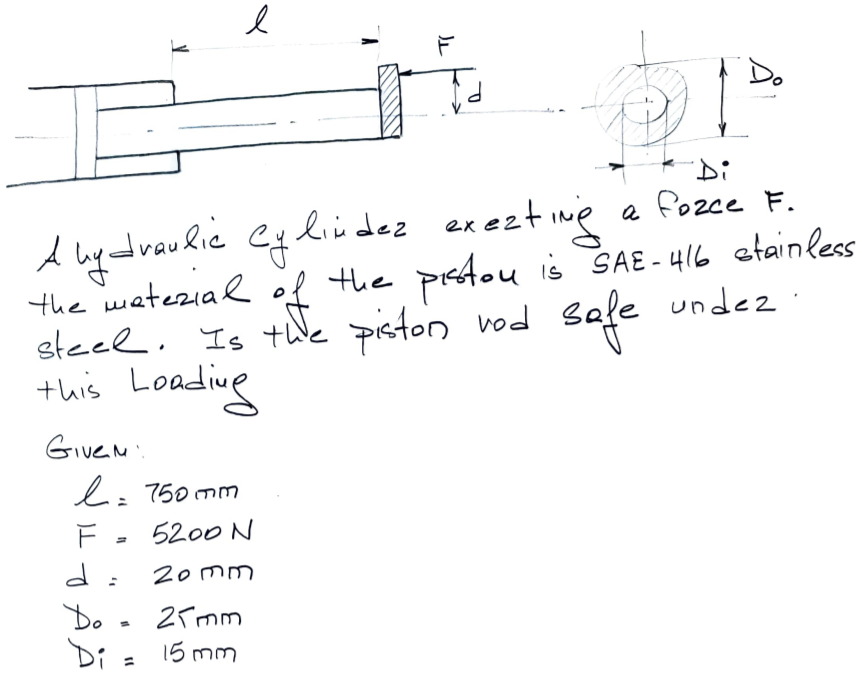 l
F
d
Do
Di
A hydraulic cylinder exerting a force F.
the material of the piston is SAE-416 stainless
steel. Is the piston rod safe under
this Loading
Given:
l = 750 mm
F = 5200 N
d = 20 mm
Do = 25 mm
Di = 15 mm